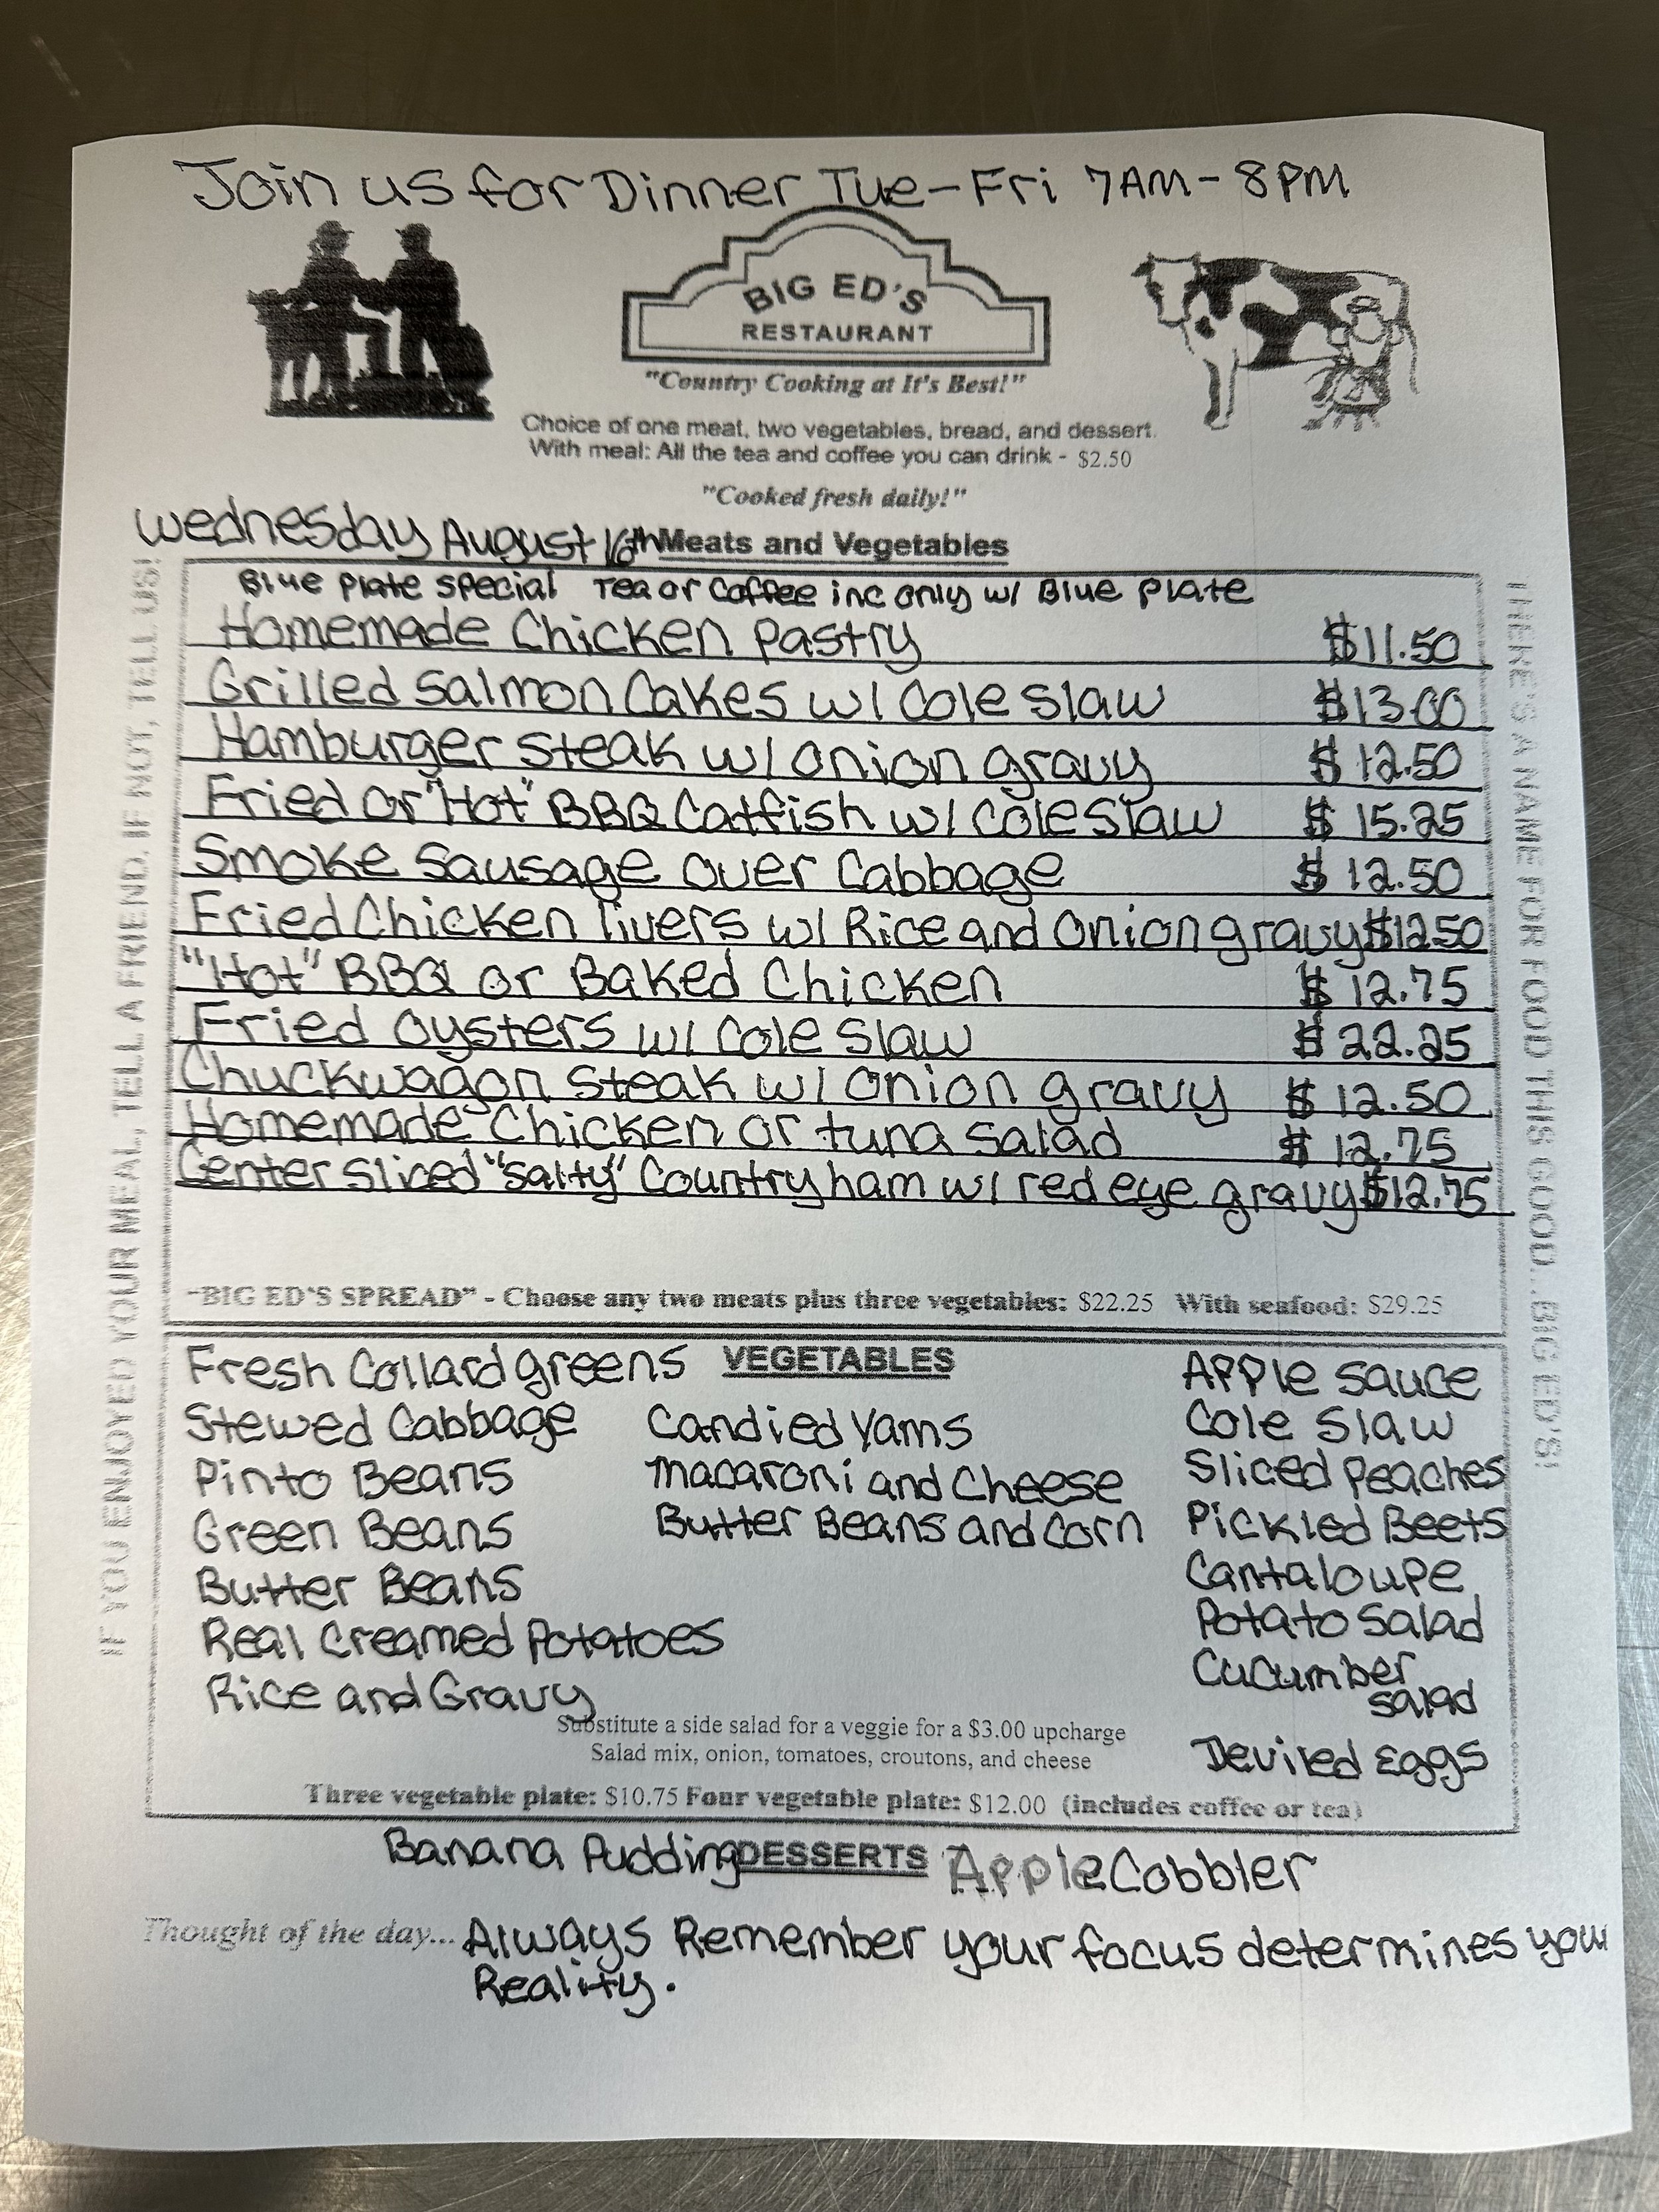 Join us for Dinner Tue-Fri 7AM-8PM
BIG ED'S
RESTAURANT
"Country Cooking at It's Best!"
Choice of one meat, two vegetables, bread, and dessert.
With meal: All the tea and coffee you can drink - $2.50
"Cooked fresh daily!"
Wednesday August 16th Meats and Vegetables
Blue Plate Special Tea or Coffee inc only w/ Blue Plate
Homemade Chicken Pastry $11.50
Grilled Salmon Cakes w/ Cole Slaw $13.00
Hamburger Steak w/ Onion gravy $12.50
Fried or "Hot" BBQ Catfish w/ Cole Slaw $15.25
Smoke Sausage Over Cabbage $12.50
Fried Chicken livers w/ Rice and Onion gravy $12.50
"Hot" BBQ or Baked Chicken $12.75
Fried Oysters w/ Cole Slaw $22.25
Chuckwagon Steak w/ Onion gravy $12.50
Homemade Chicken or tuna Salad $12.75
Center Sliced "Salty" Country ham w/ red eye gravy $12.75
"BIG ED'S SPREAD" - Choose any two meats plus three vegetables: $22.25 With seafood: $29.25
IF YOU ENJOYED YOUR MEAL, TELL A FRIEND. IF NOT, TELL US!
THERE'S A NAME FOR FOOD THIS GOOD...BIG ED'S!
VEGETABLES
Fresh Collard greens
Stewed Cabbage
Pinto Beans
Green Beans
Butter Beans
Real Creamed Potatoes
Rice and Gravy
Candied Yams
Macaroni and Cheese
Butter Beans and Corn
Apple Sauce
Cole Slaw
Sliced Peaches
Pickled Beets
Cantaloupe
Potato Salad
Cucumber
salad
Deviled Eggs
Substitute a side salad for a veggie for a $3.00 upcharge
Salad mix, onion, tomatoes, croutons, and cheese
Three vegetable plate: $10.75 Four vegetable plate: $12.00 (includes coffee or tea)
Banana Pudding DESSERTS Apple Cobbler
Thought of the day... Always Remember your focus determines your
Reality.